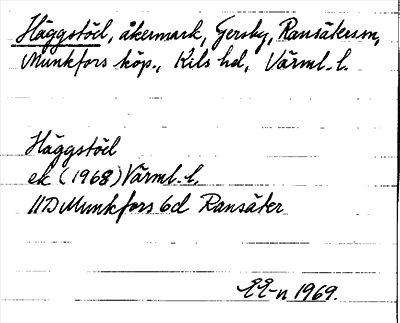 Häggstöcl, åkermark, Gersby, Ransätersn,
Munkfors köp., Kils hd, Värml. l.
Häggstöcl
ek (1968) Värml. l.
11D Munkfors 6d Ransäter
EE-n 1969.